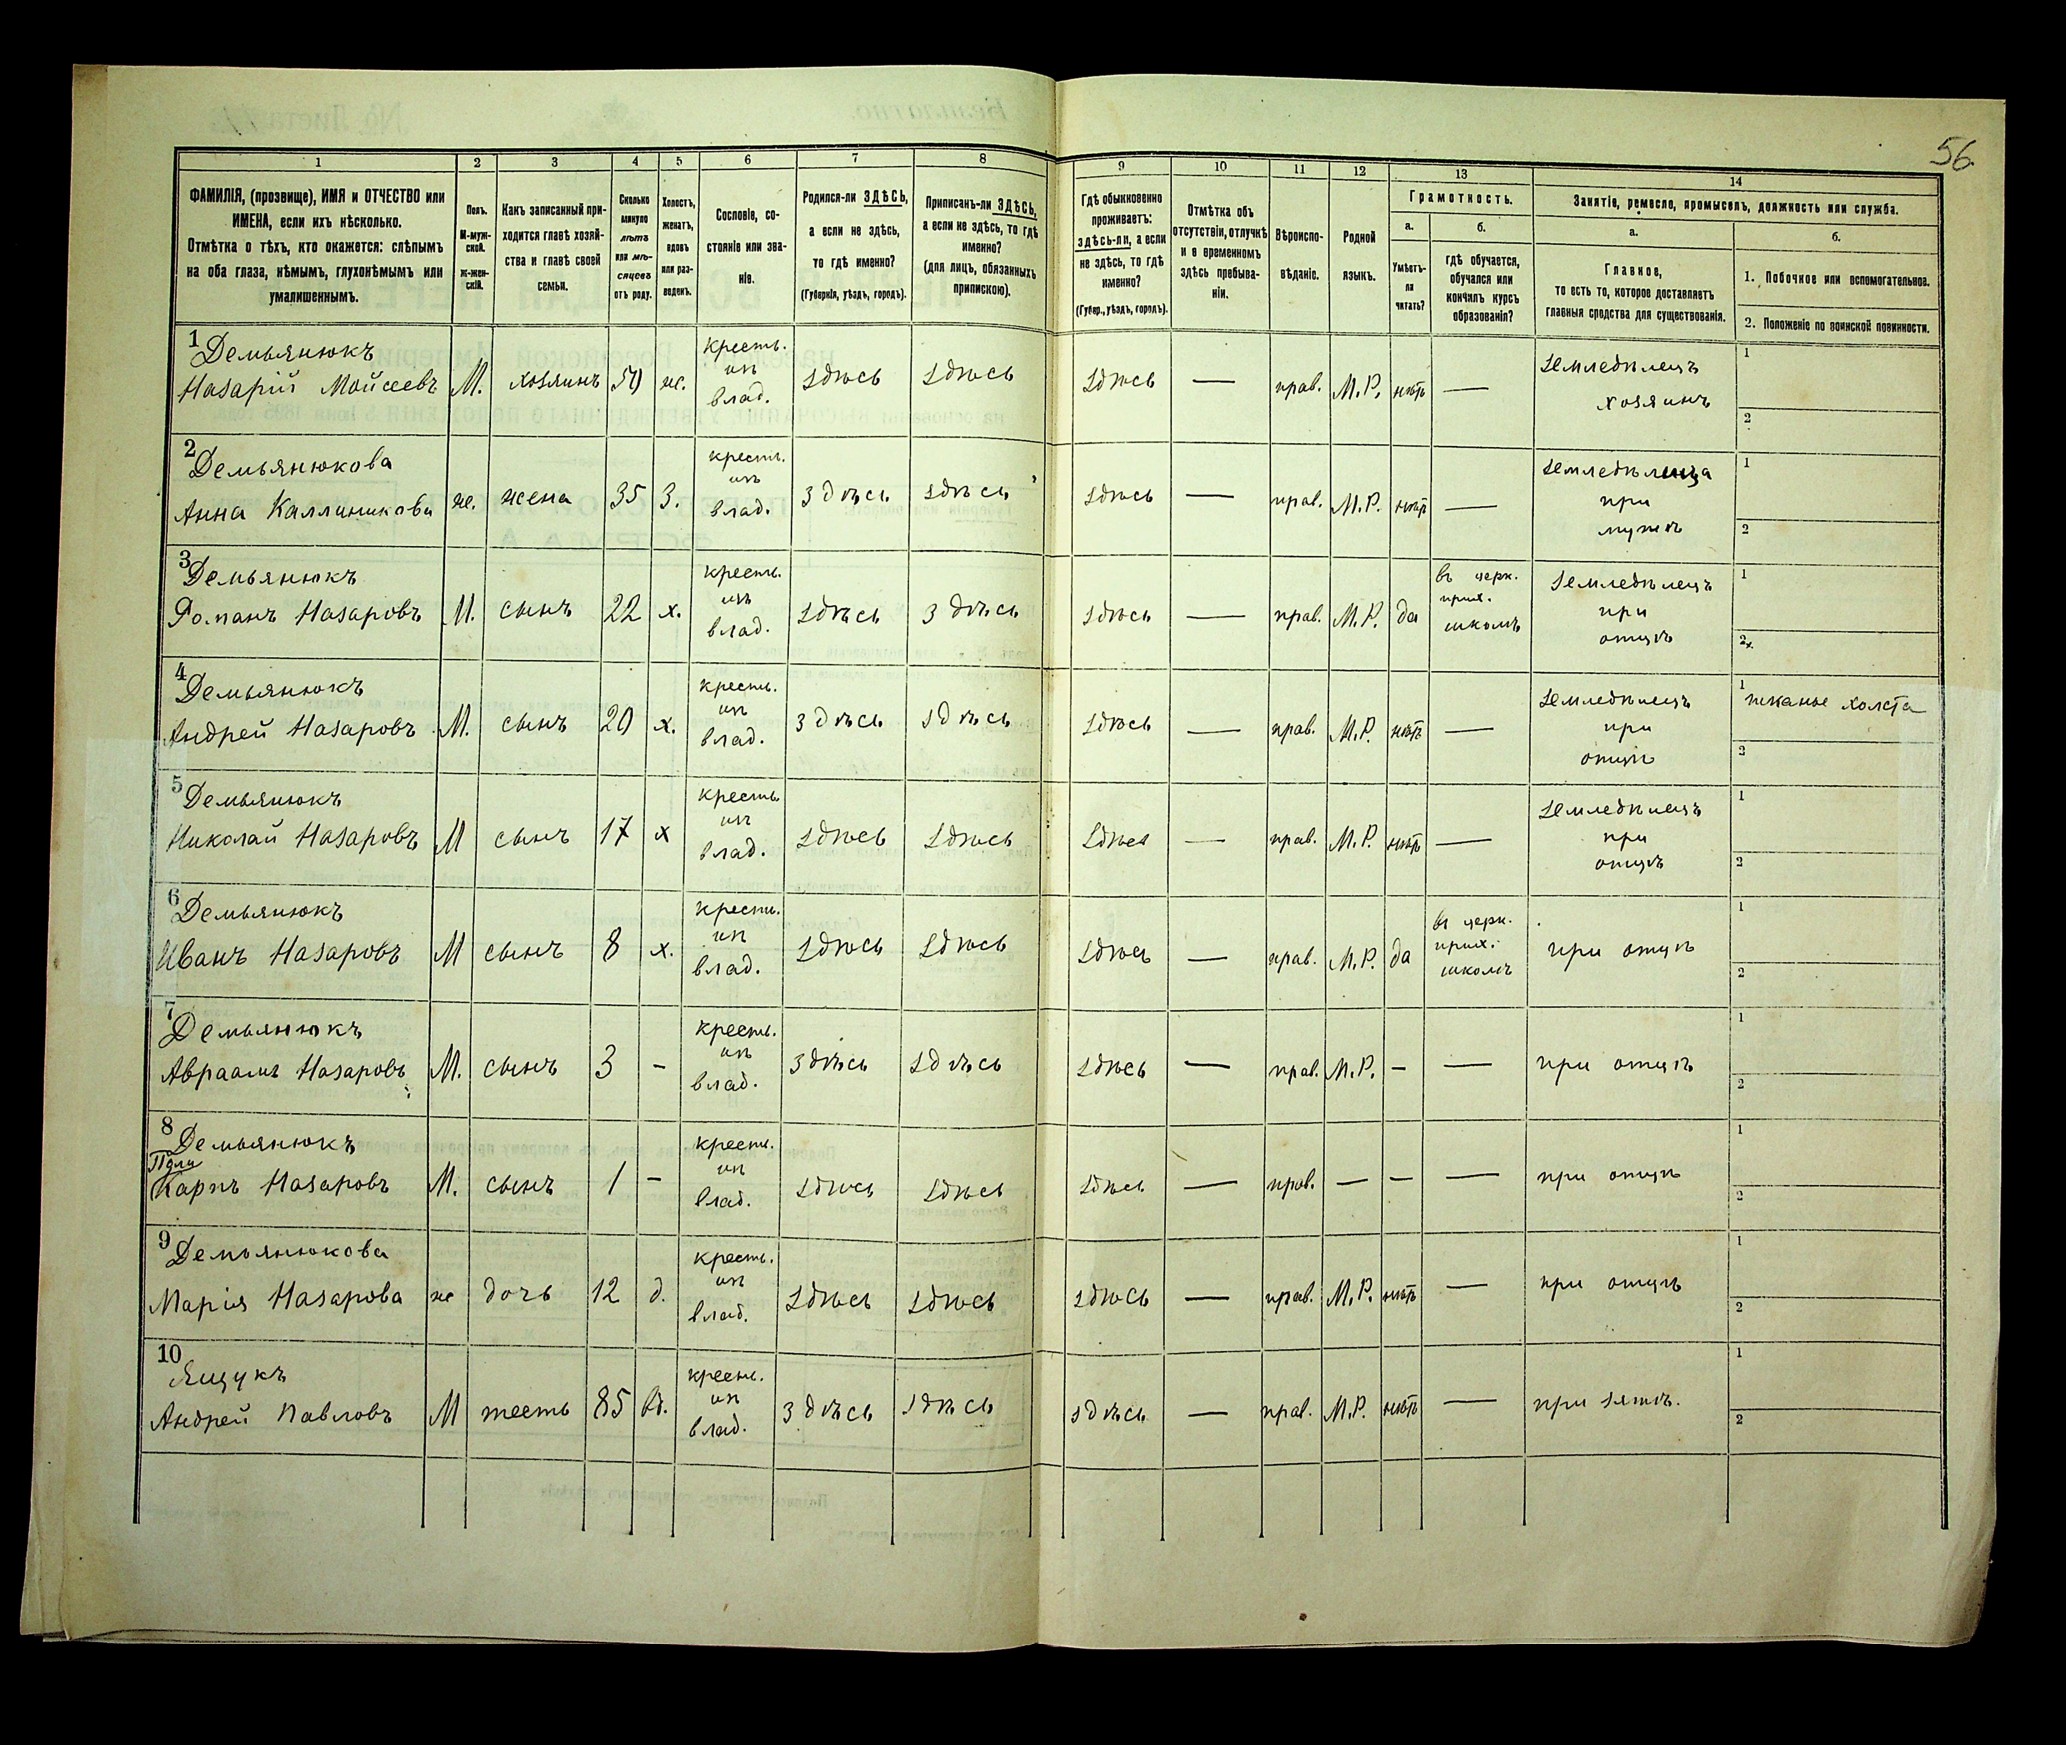 56
1 2 3 4 5 6 7 8 9 10 11 12 13 14
ФАМИЛІЯ, (прозвище), ИМЯ и ОТЧЕСТВО или
ИМЕНА, если ихъ нѣсколько.
Отмѣтка о тѣхъ, кто окажется: слѣпымъ
на оба глаза, нѣмымъ, глухонѣмымъ или
умалишеннымъ.
Полъ.
М-муж-
ской.
ж-жен-
скій.
Какъ записанный при-
ходится главѣ хозяй-
ства и главѣ своей
семьи.
Сколько
минуло
лѣтъ
или мѣ-
сяцевъ
отъ роду.
Холостъ,
женатъ,
вдовъ
или раз-
веденъ.
Сословіе, со-
стояніе или зва-
ніе.
Родился-ли ЗДѢСЬ,
а если не здѣсь,
то гдѣ именно?
(Губернія, уѣздъ, городъ).
Приписанъ-ли ЗДѢСЬ,
а если не здѣсь, то гдѣ
именно?
(для лицъ, обязанныхъ
припискою).
Гдѣ обыкновенно
проживаетъ:
здѣсь-ли, а если
не здѣсь, то гдѣ
именно?
(Губер., уѣздъ, городъ).
Отмѣтка объ
отсутствіи, отлучкѣ
и о временномъ
здѣсь пребыва-
ніи.
Вѣроиспо-
вѣданіе.
Родной
языкъ.
Грамотность.
а.
Умѣетъ-
ли
читать?
б.
гдѣ обучается,
обучался или
кончилъ курсъ
образованія?
Занятіе, ремесло, промыселъ, должность или служба.
а.
Главное,
то есть то, которое доставляетъ
главныя средства для существованія.
б.
1. Побочное или вспомогательное.
2. Положеніе по воинской повинности.
1 Демьянюкъ
Назарій Мойсеевъ М. хозяинъ 50 ж. крестъ. из влад. здѣсь здѣсь здѣсь — прав. М.Р. нѣтъ — земледѣлецъ хозяинъ 1 2
2 Демьянюкова
Анна Каллиникова ж. жена 35 З. крестъ. изъ влад. здѣсь здѣсь здѣсь — прав. М.Р. нѣтъ — земледѣлица при мужѣ 1 2
3 Демьянюкъ
Романъ Назаровъ М. сынъ 22 х. крестъ. изъ влад. здѣсь здѣсь здѣсь — прав. М.Р. да въ церк. прих. школѣ земледѣлецъ при отцѣ 1 2х
4 Демьянюкъ
Андрей Назаровъ М. сынъ 20 х. крестъ. из влад. здѣсь здѣсь здѣсь — прав. М.Р. нѣтъ — земледѣлецъ при отцѣ 1 тканье холста 2
5 Демьянюкъ
Николай Назаровъ М сынъ 17 х крестъ. из влад. здѣсь здѣсь здѣсь — прав. М.Р. нѣтъ — земледѣлецъ при отцѣ 1 2
6 Демьянюкъ
Иванъ Назаровъ М сынъ 8 х. крестъ. из влад. здѣсь здѣсь здѣсь — прав. М.Р. да въ церк. прих. школѣ при отцѣ 1 2
7 Демьянюкъ
Авраамъ Назаровъ М. сынъ 3 - крестъ. из влад. здѣсь здѣсь здѣсь — прав. М.Р. - — при отцѣ 1 2
8 Демьянюкъ
Карпъ Назаровъ М. сынъ 1 - крестъ. из влад. здѣсь здѣсь здѣсь — прав. — - — при отцѣ 1 2
9 Демьянюкова
Марія Назарова ж дочь 12 д. крестъ. из влад. здѣсь здѣсь здѣсь — прав. М.Р. нѣтъ — при отцѣ 1 2
10 Ящукъ
Андрей Павловъ М тесть 85 вд. крестъ. из влад. здѣсь здѣсь здѣсь — прав. М.Р. нѣтъ — при зятѣ. 1 2